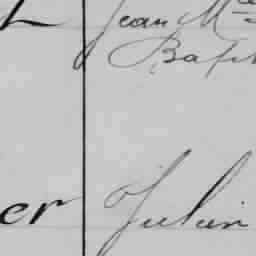 Jean Mce
Bapt
er Julien